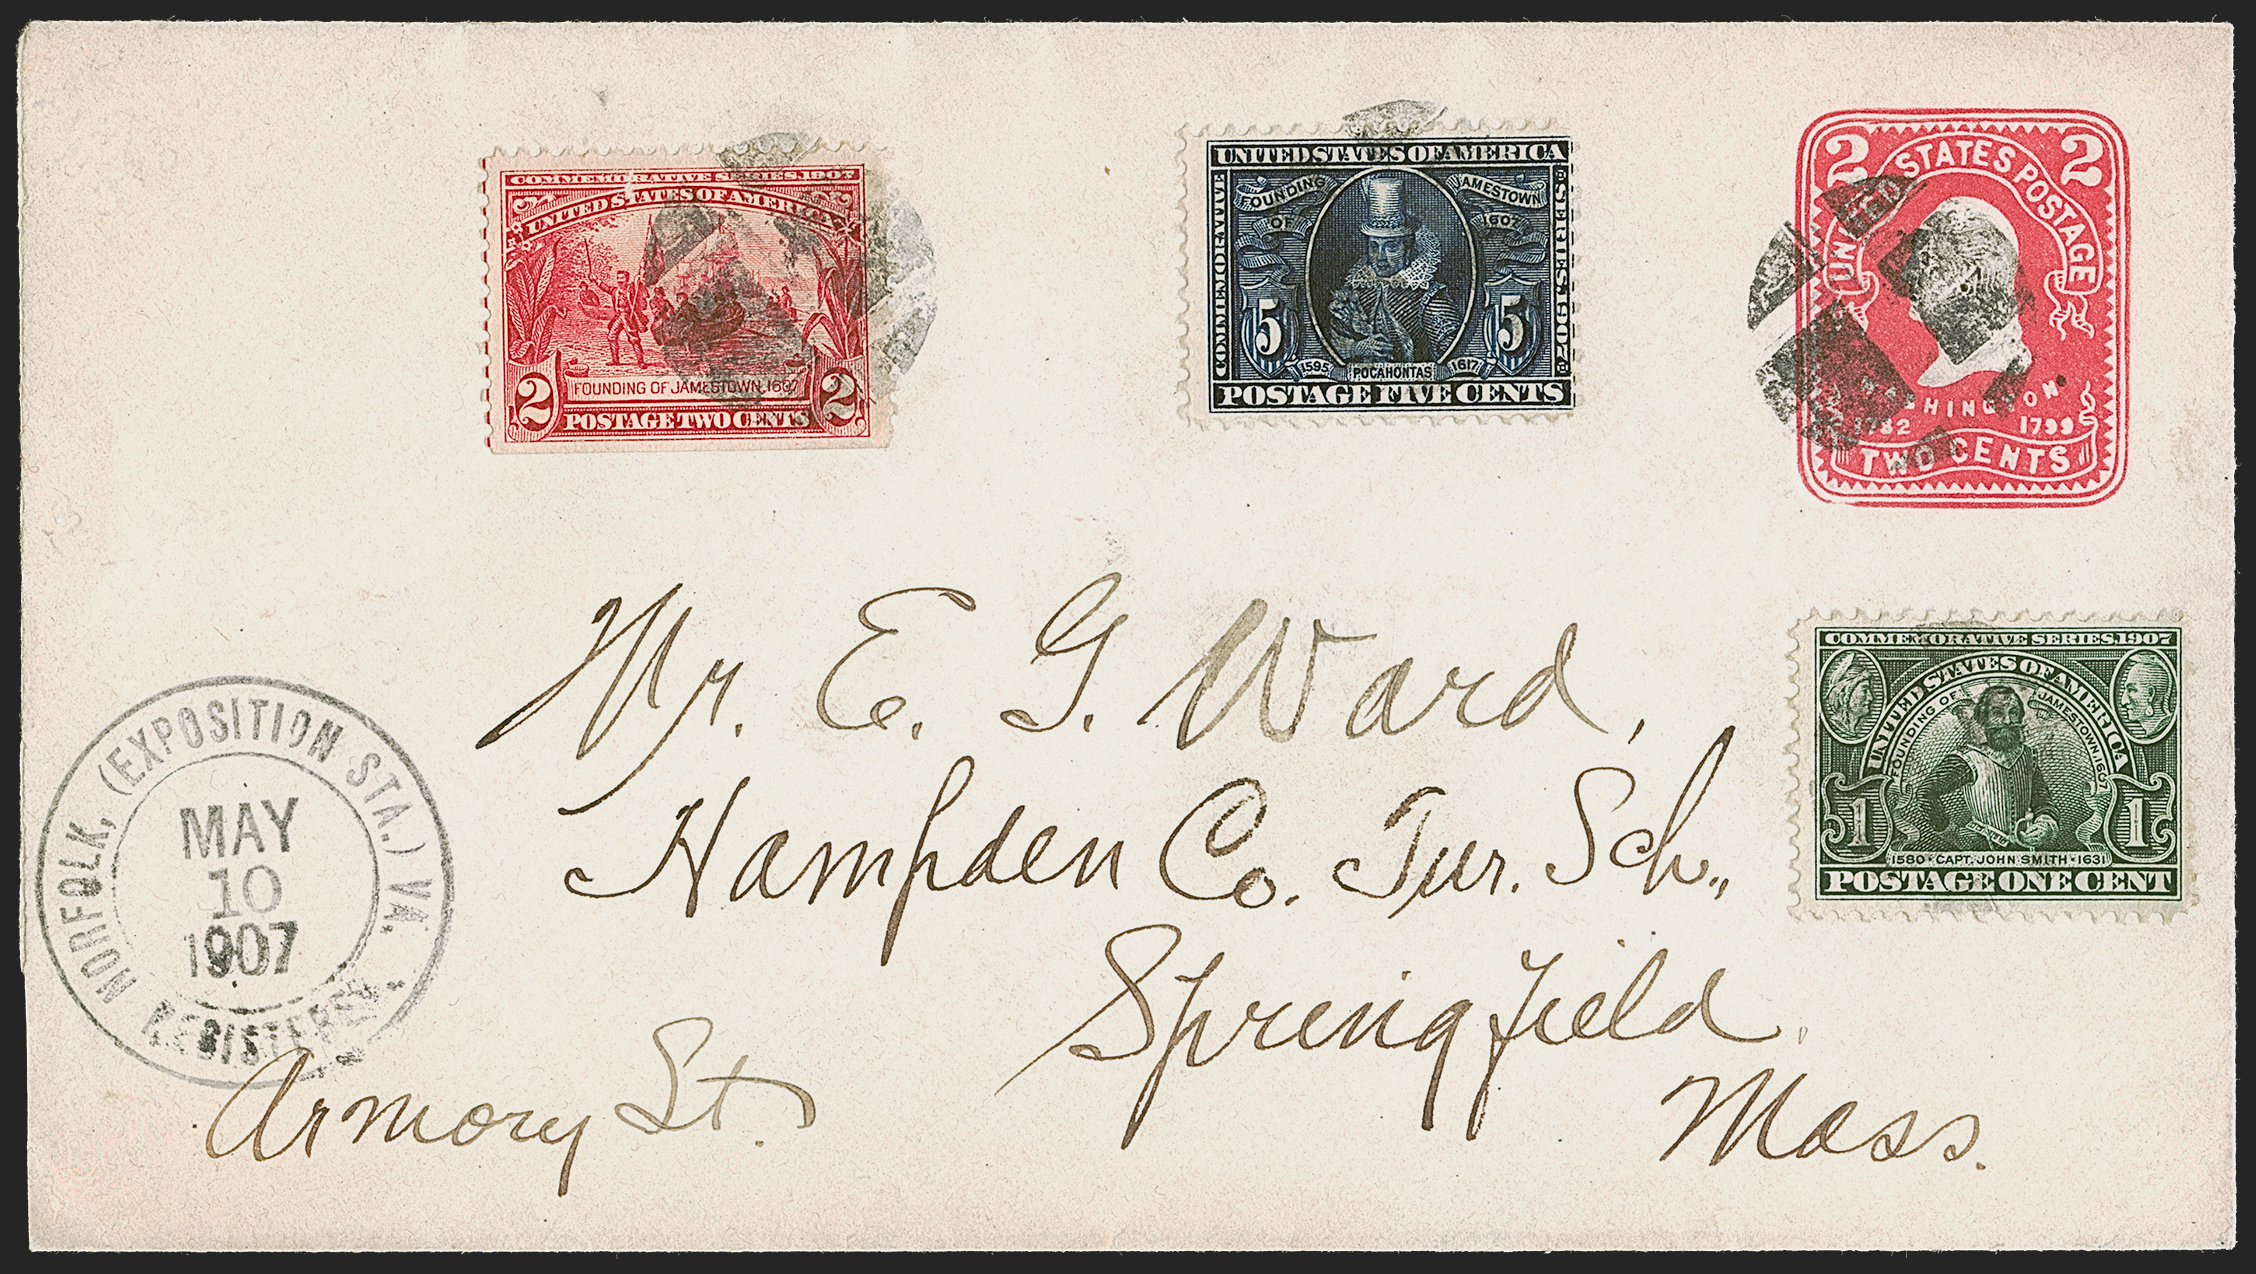 COMMEMORATIVE SERIES 1907
UNITED STATES OF AMERICA
FOUNDING OF JAMESTOWN, 1607
2 2
POSTAGE TWO CENTS
UNITED STATES OF AMERICA
COMMEMORATIVE
SERIES 1907
FOUNDING OF
JAMESTOWN 1607
5 5
1595 POCAHONTAS 1617
POSTAGE FIVE CENTS
2 2
UNITED STATES POSTAGE
WASHINGTON
1732 1799
TWO CENTS
COMMEMORATIVE SERIES 1907
UNITED STATES OF AMERICA
FOUNDING OF JAMESTOWN, 1607
1 1
1580 · CAPT. JOHN SMITH · 1631
POSTAGE ONE CENT
Mr. E. G. Ward,
Hampden Co. Tur. Sch.,
Springfield
Mass.
Armory St.
NORFOLK, (EXPOSITION STA.) VA.
MAY
10
1907
REGISTERED